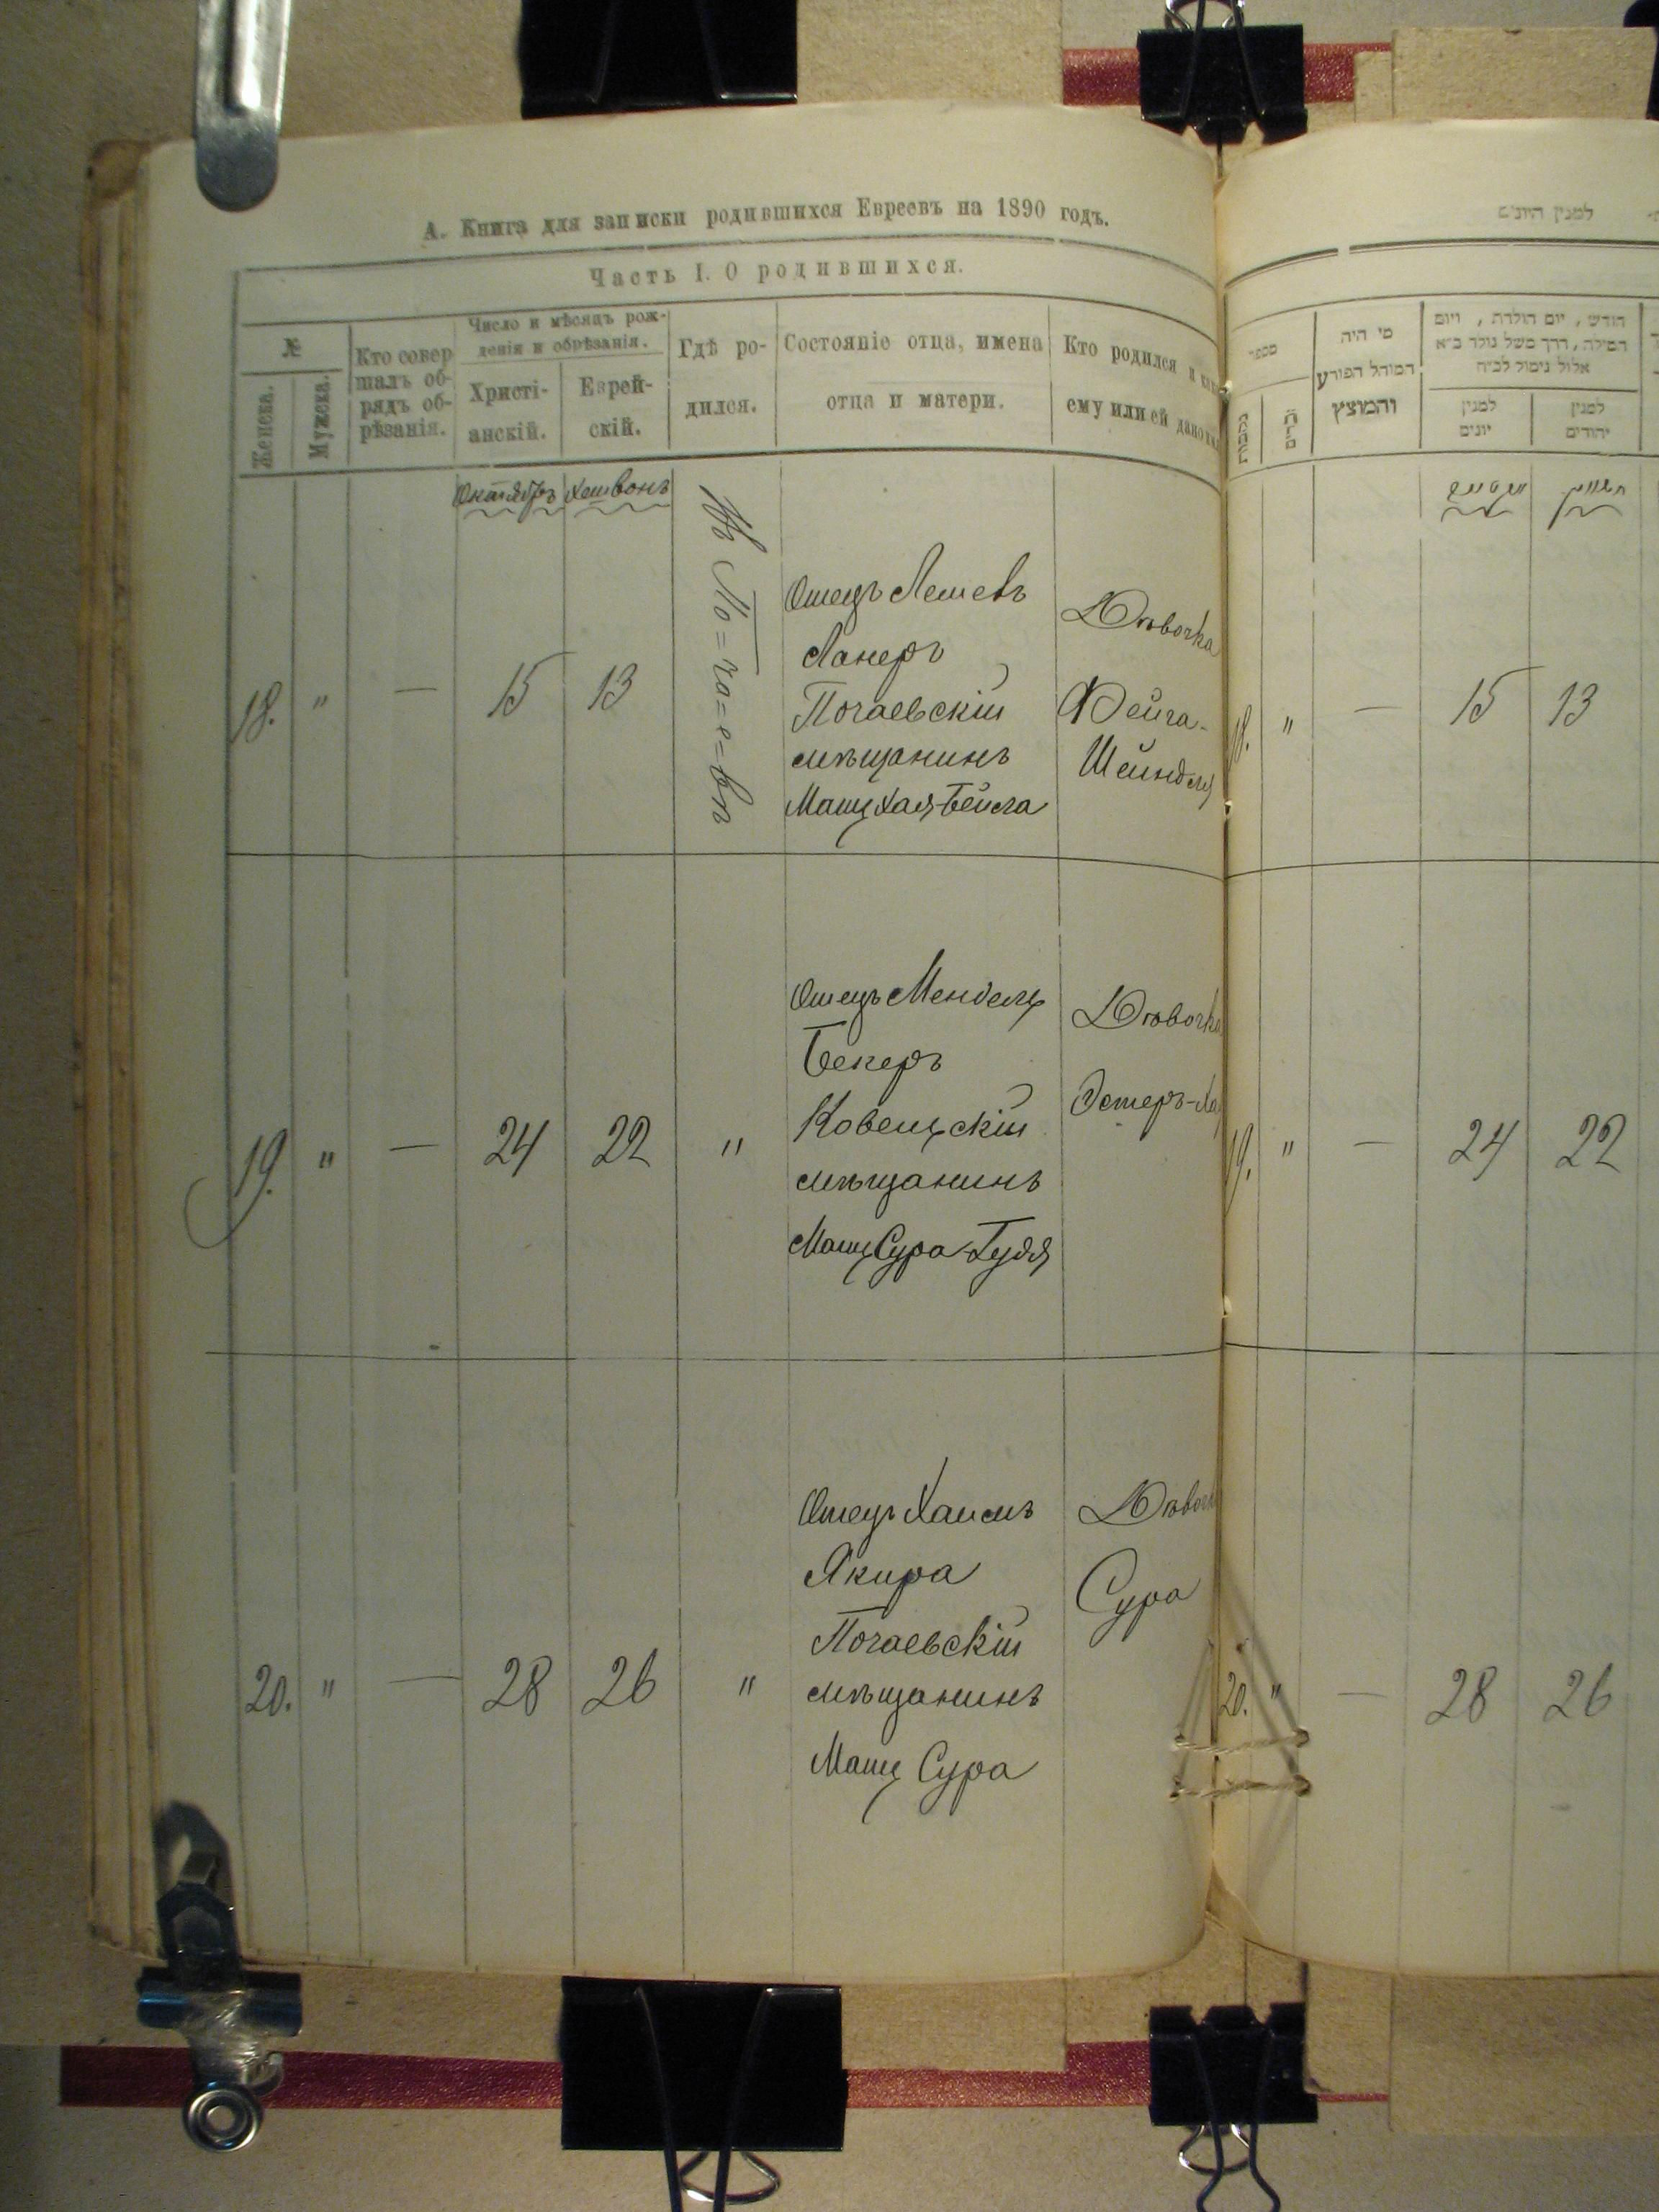 А. Книга для записки родившихся Евреевъ на 1890 годъ.
Часть I. О родившихся.
№
Женска.
Мужска.
Кто совер
шалъ об-
рядъ об-
рѣзанія.
Число и мѣсяцъ рож-
денія и обрѣзанія.
Христі-
анскій.
Еврей-
скій.
Гдѣ ро-
дился.
Состояніе отца, имена
отца и матери.
Кто родился и
ему или ей дано
Октябрь Хешвонъ
18. " — 15 13
Въ По=ча=е=вѣ
Отецъ
Ланеръ
Почаевскій
мѣщанинъ
Мать Хая-Бейла
Дѣвочка
Фейга-
Шейндля
19. " — 24 22 "
Отецъ Мендель
Бекеръ
Ковельскій
мѣщанинъ
Мать Сура-Гудя
Дѣвочка
Эстеръ-
20. " — 28 26 "
Отецъ Хаимъ
Якира
Почаевскій
мѣщанинъ
Мать Сура
Дѣвочк
Сура
למנין היונים
מספר
נקיבות
זכרים
מי היה
המוהל הפורע
והמוצץ
חודש, יום הולדת, ויום
המילה, דרך משל נולד ב״א
אלול נימול לב״ח
למנין
יונים
למנין
יהודים
חשון
18. " — 15 13
19. " — 24 22
20. " — 28 26